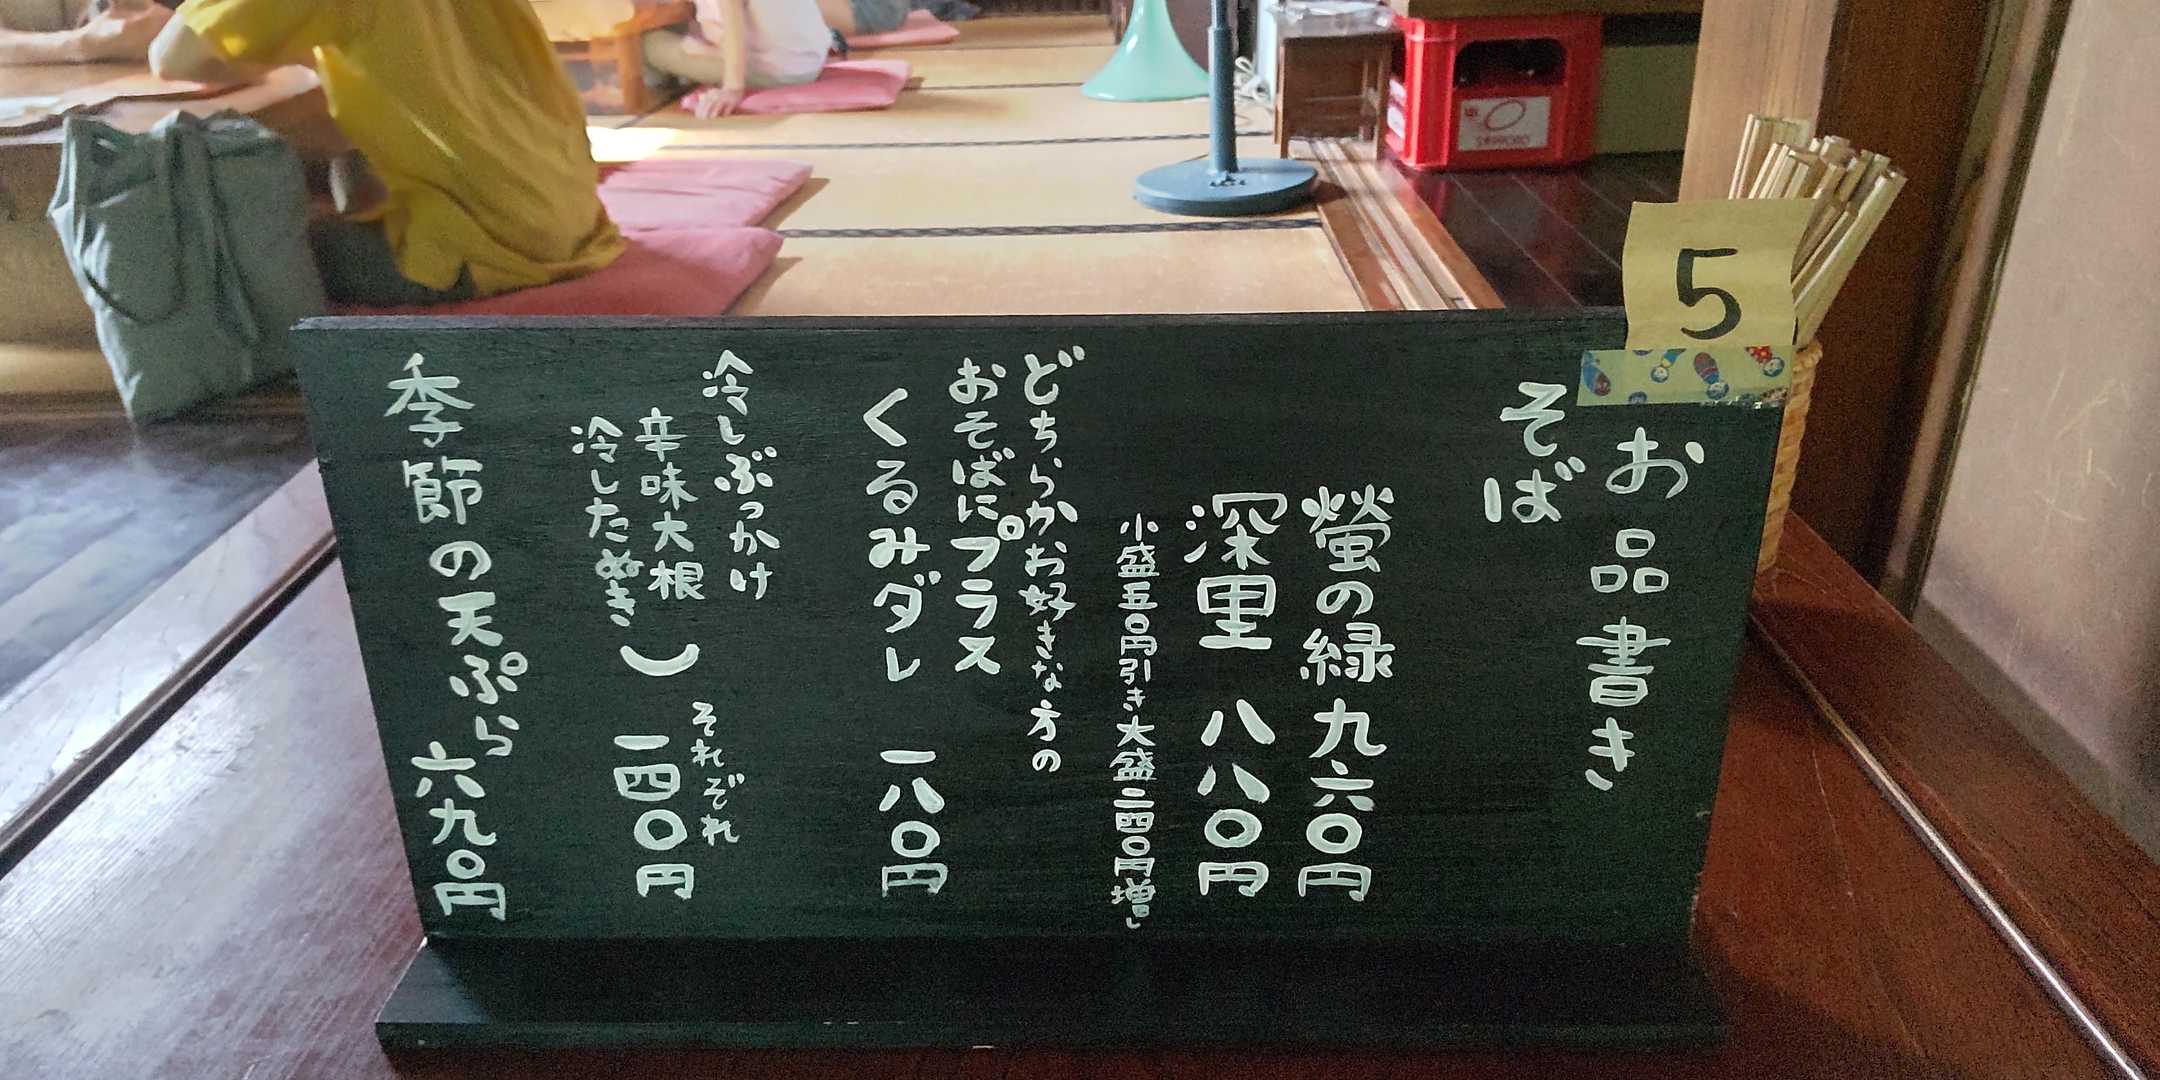 5
お品書き
そば
螢の緑 九六〇円
深里 八八〇円
小盛五〇円引き大盛二四〇円増し
どちらかお好きな方の
おそばにプラス
くるみダレ 一八〇円
冷しぶっかけ
辛味大根
冷したぬき
それぞれ
一四〇円
季節の天ぷら 六九〇円
SAPPORO